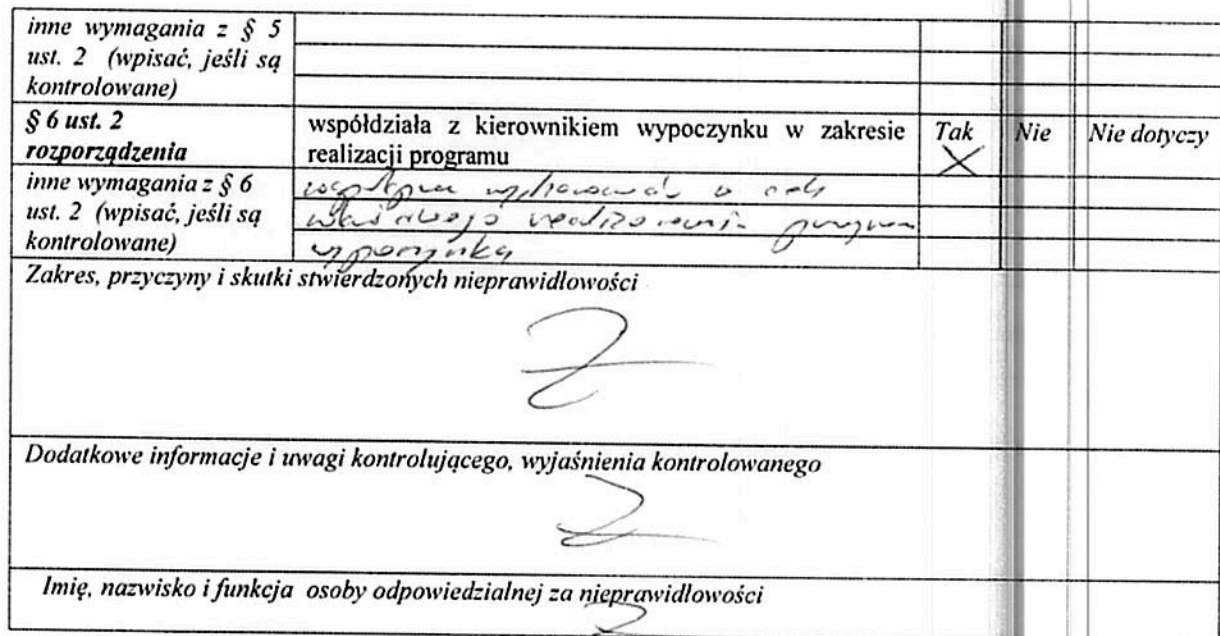 inne wymagania z § 5
ust. 2 (wpisać, jeśli są
kontrolowane)
§ 6 ust. 2
rozporządzenia
współdziała z kierownikiem wypoczynku w zakresie
realizacji programu
Tak Nie Nie dotyczy
X
inne wymagania z § 6
ust. 2 (wpisać, jeśli są
kontrolowane)
w celu
właściwego
wypoczynku
Zakres, przyczyny i skutki stwierdzonych nieprawidłowości
Dodatkowe informacje i uwagi kontrolującego, wyjaśnienia kontrolowanego
Imię, nazwisko i funkcja osoby odpowiedzialnej za nieprawidłowości